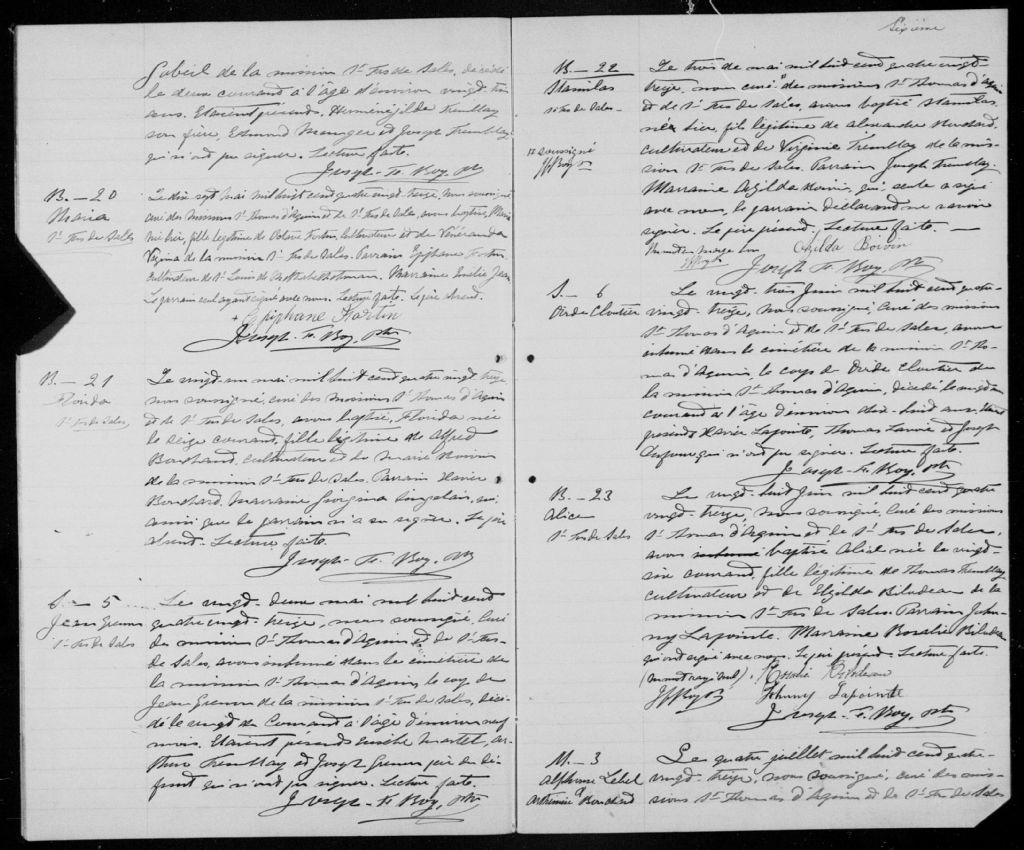 de la mission St Frs de Sales, décédé
le deux courant à l'âge d'environ vingt
ans. Etaient présents, Herménégilde Tremblay
son père, Edmond et Joseph Tremblay
qui n'ont pu signer. Lecture faite.
Joseph. F. Roy, Ptr
B. — 20
Maria
St Frs de Sales
Le dix sept mai mil huit cent quatre vingt treize, nous soussigné
curé des missions St Thomas d'Aquin et de St Frs de Sales, avons baptisé, Maria
née hier, fille légitime de Fortin, cultivateur et de
de la mission St Frs de Sales. Parrain Epiphane Fortin
cultivateur de St Louis de Marraine
Le parrain seul ayant signé avec nous. Lecture faite. Le père absent.
Epiphane Fortin
Joseph. F. Roy, Ptr
B. — 21
Florida
St Frs de Sales
Le vingt un mai mil huit cent quatre vingt treize
nous soussigné, curé des missions St Thomas d'Aquin
et de St Frs de Sales, avons baptisé, Florida née
le seize courant, fille légitime de Alfred
Bouchard, cultivateur et de Marie
de la mission St Frs de Sales. Parrain Xavier
Bouchard. Marraine Georgina Langlais, qui
ainsi que le parrain n'a su signer. Le père
absent. Lecture faite.
Joseph. F. Roy, Ptr
S. — 5
Jean Grenon
St Frs de Sales
Le vingt-deux mai mil huit cent
quatre vingt-treize, nous soussigné, curé
des missions St Thomas d'Aquin et de St Frs
de Sales, avons inhumé dans le cimetière de
la mission St Thomas d'Aquin, le corps de
Jean Grenon de la mission St Frs de Sales, décé-
dé le vingt du courant à l'âge d'environ neuf
mois. Etaient présents Martel, Ar-
thur Tremblay et Joseph Grenon père du dé-
funt qui n'ont pu signer. Lecture faite.
Joseph. F. Roy, Ptr
Sixième
B. — 22
Stanilas
St Frs de Sales
# soussigné
JFRoy Ptr
Le trois de mai mil huit cent quatre vingt
treize, nous # curé des missions St Thomas d'Aquin
et de St Frs de Sales, avons baptisé Stanilas
né hier, fils légitime de Alexandre Bouchard
cultivateur et de Virginie Tremblay de la mis-
sion St Frs de Sales. Parrain Joseph Tremblay.
Marraine Exilda Boivin, qui seule a signé
avec nous, le parrain déclarant ne savoir
signer. Le père présent. Lecture faite. —
Un mot en marge bon
Exilda Boivin
JFRoy Ptr
Joseph. F. Roy, Ptr
S. — 6
Cloutier
Le vingt-trois Juin mil huit cent quatre-
vingt-treize, nous soussigné, curé des missions
St Thomas d'Aquin et de St Frs de Sales, avons
inhumé dans le cimetière de la mission St Tho-
mas d'Aquin, le corps de Cloutier de
la mission St Thomas d'Aquin, décédé le vingt
courant à l'âge d'environ dix-huit ans. Etaient
présents Xavier Lapointe, Thomas Lavoie et Joseph
qui n'ont pu signer. Lecture faite.
Joseph. F. Roy, Ptr
B. — 23
Alice
St Frs de Sales
Le vingt-huit Juin mil huit cent quatre
vingt-treize, nous soussigné, curé des missions
St Thomas d'Aquin et de St Frs de Sales,
avons inhumé baptisé Alice née le vingt-
six courant, fille légitime de Thomas Tremblay
cultivateur et de Exilda Bilodeau de la
mission St Frs de Sales. Parrain John-
ny Lapointe. Marraine Rosalie Bilodeau
qui ont signé avec nous. Le père présent. Lecture faite.
(un mot rayé nul).
Rosalie Bilodeau
JFRoy Ptr
Johnny Lapointe
Joseph. F. Roy, Ptr
M. — 3
Alphonse Lebel
&
Arthémise Bouchard
Le quatre juillet mil huit cent quatre-
vingt-treize, nous soussigné, curé des mis-
sions St Thomas d'Aquin et de St Frs de Sales